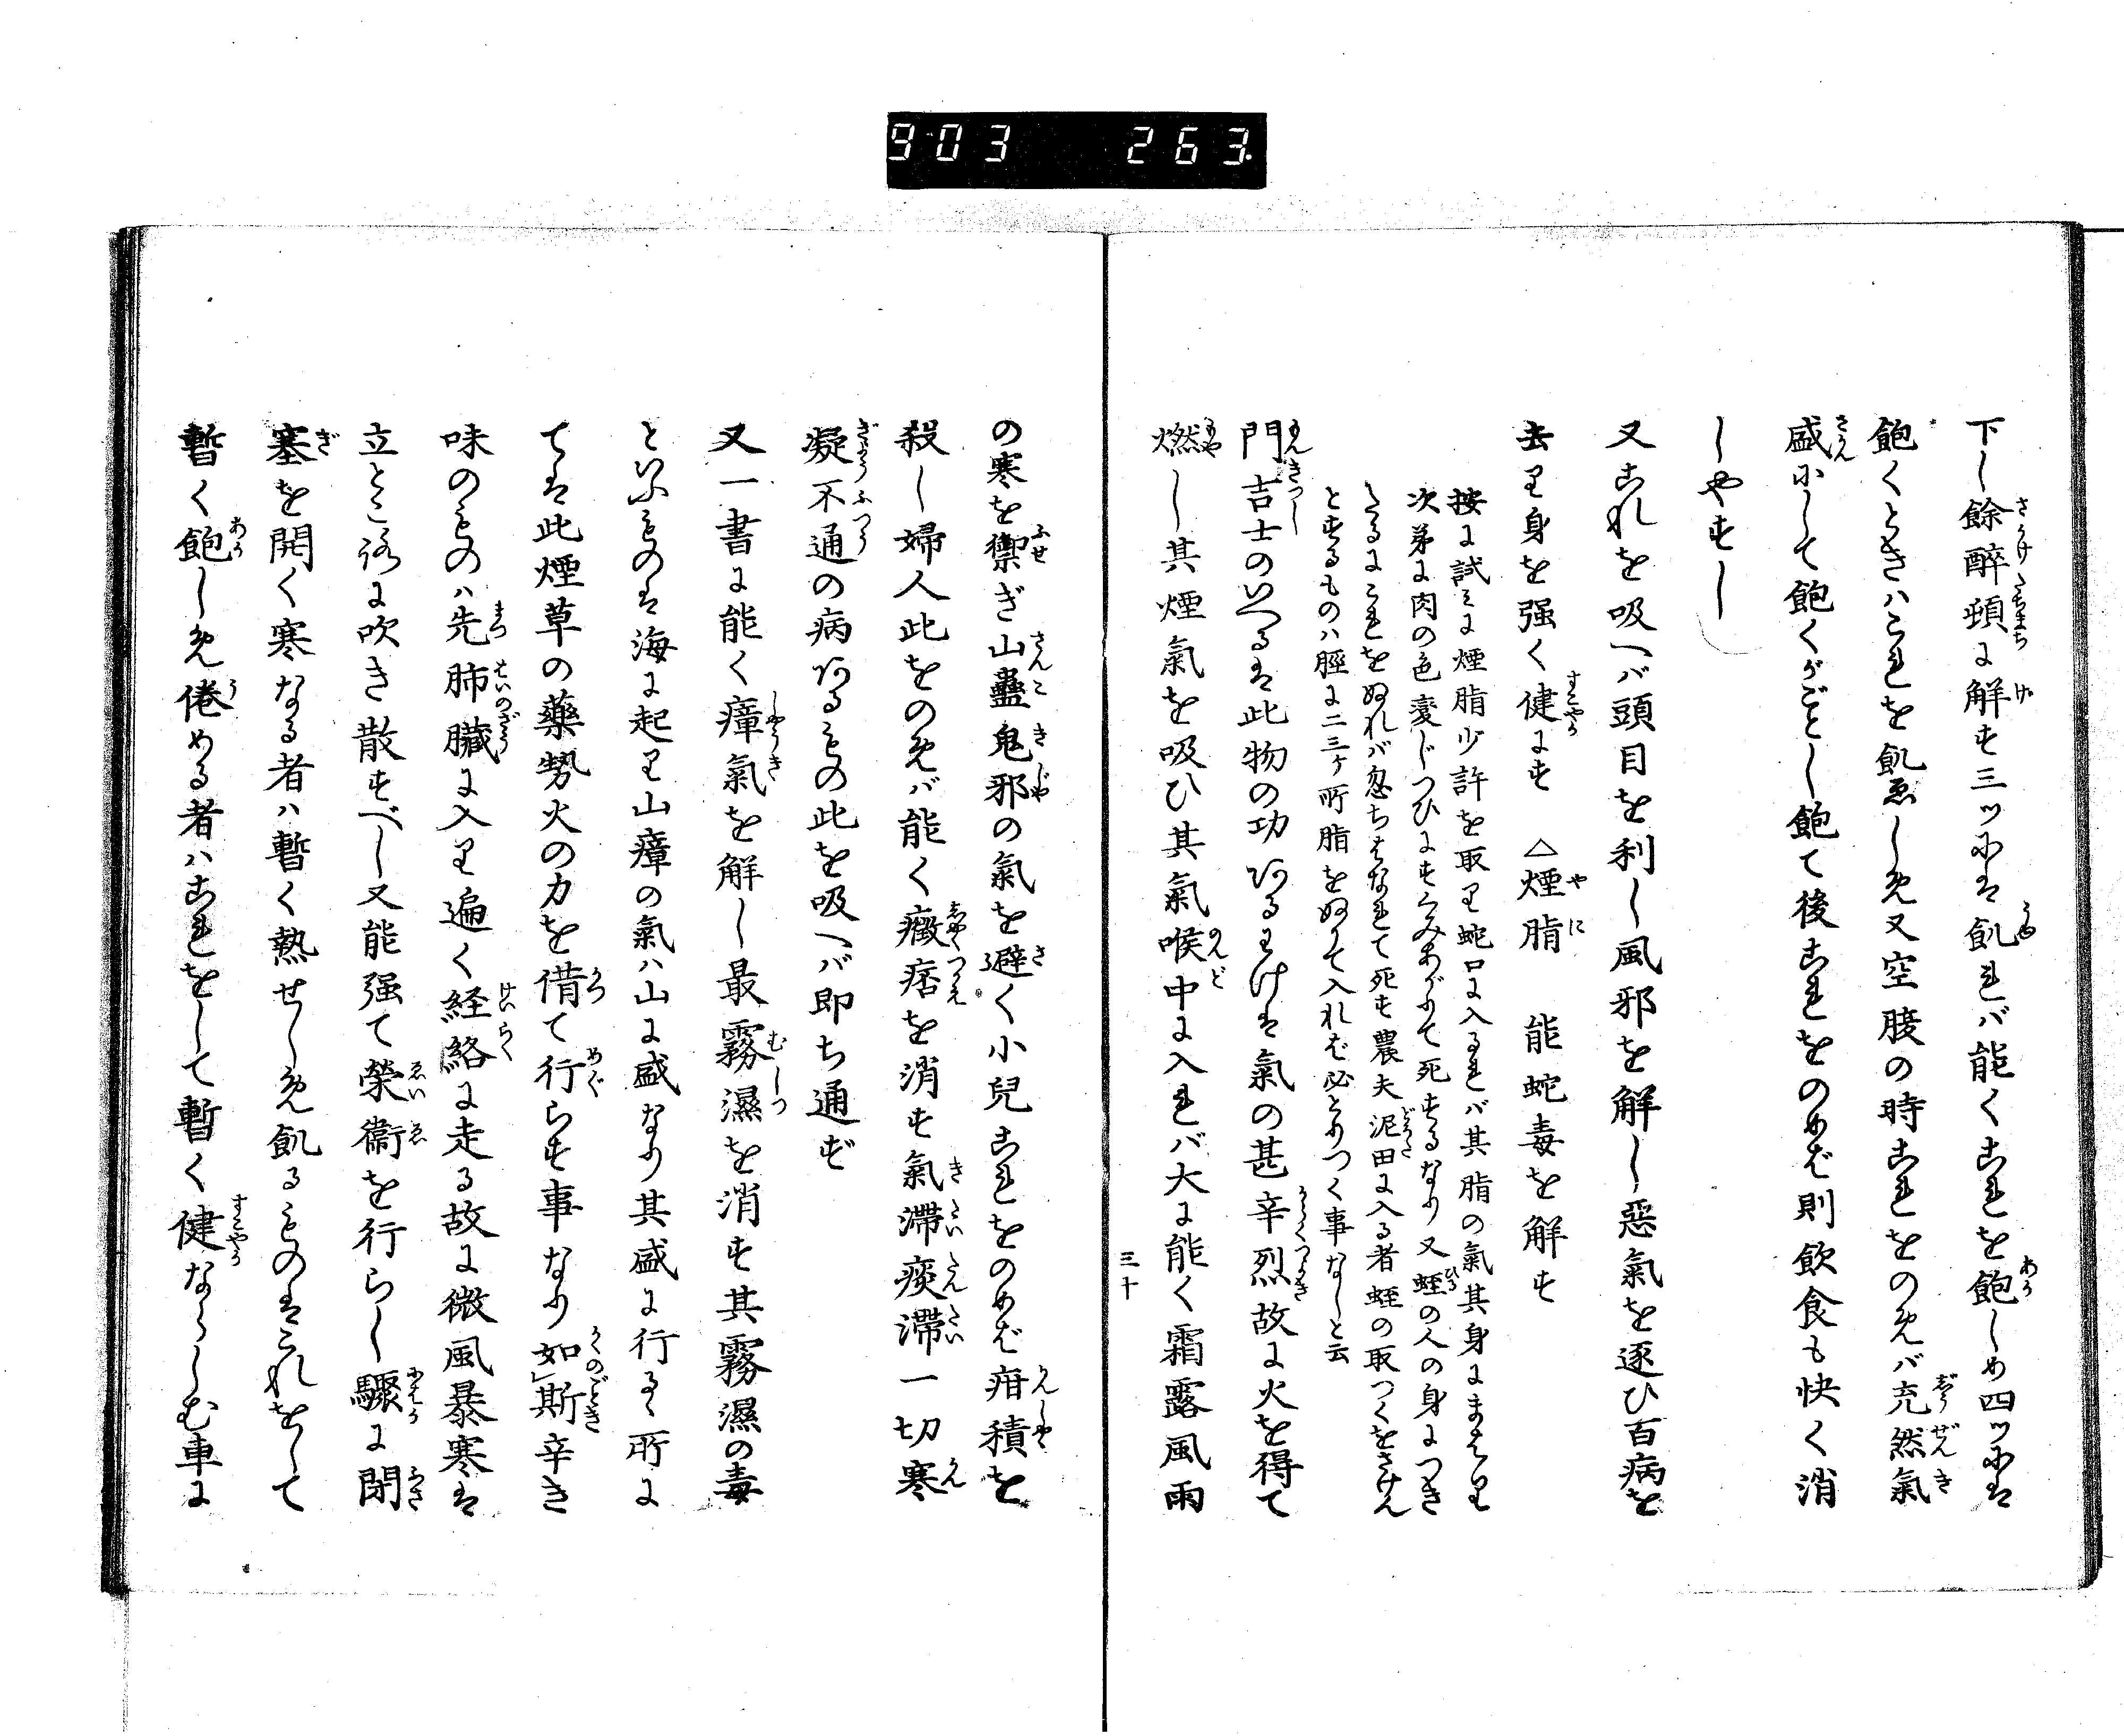 903 263.
下し餘醉頓に解す三ツには飢れバ能くこれを飽しめ四ツには
飽くときハこれを飢ゑしむ又空腹の時これをのめバ充然氣
盛にして飽くがごとし飽て後これをのめば則飲食も快く消
しやすし
又これを吸へバ頭目を利し風邪を解し惡氣を逐ひ百病を
去り身を强く健にす △煙脂 能蛇毒を解す
按に試ミに煙脂少許を取り蛇口に入るれバ其脂の氣其身にまはり
次第に肉の色変じつひにすくみあがりて死するなり又蛭の人の身につき
たるにこれをぬれバ忽ちはなれて死す農夫泥田に入る者蛭の取つくをさけん
とするものハ脛に二三ヶ所脂をぬりて入れば必とりつく事なしと云
門吉士のいへるは此物の功あるわけは氣の甚辛烈故に火を得て
燃し其煙氣を吸ひ其氣喉中に入れバ大に能く霜露風雨
三十
の寒を禦ぎ山蠱鬼邪の氣を避く小兒これをのめば疳積を
殺し婦人此をのめバ能く癥痞を消す氣滯痰滯一切寒
凝不通の病あるもの此を吸へバ即ち通ず
又一書に能く瘴氣を解し最霧濕を消す其霧濕の毒
といふものは海に起り山瘴の氣ハ山に盛なり其盛に行るゝ所に
ては此煙草の藥勢火の力を借て行らす事なり如斯辛き
味のものハ先肺臟に入り遍く経絡に走る故に微風暴寒は
立ところに吹き散すべし又能强て榮衞を行らし驟に閉
塞を開く寒なる者ハ暫く熱せしめ飢るものはこれをして
暫く飽しめ倦める者ハこれをして暫く健ならしむ車に